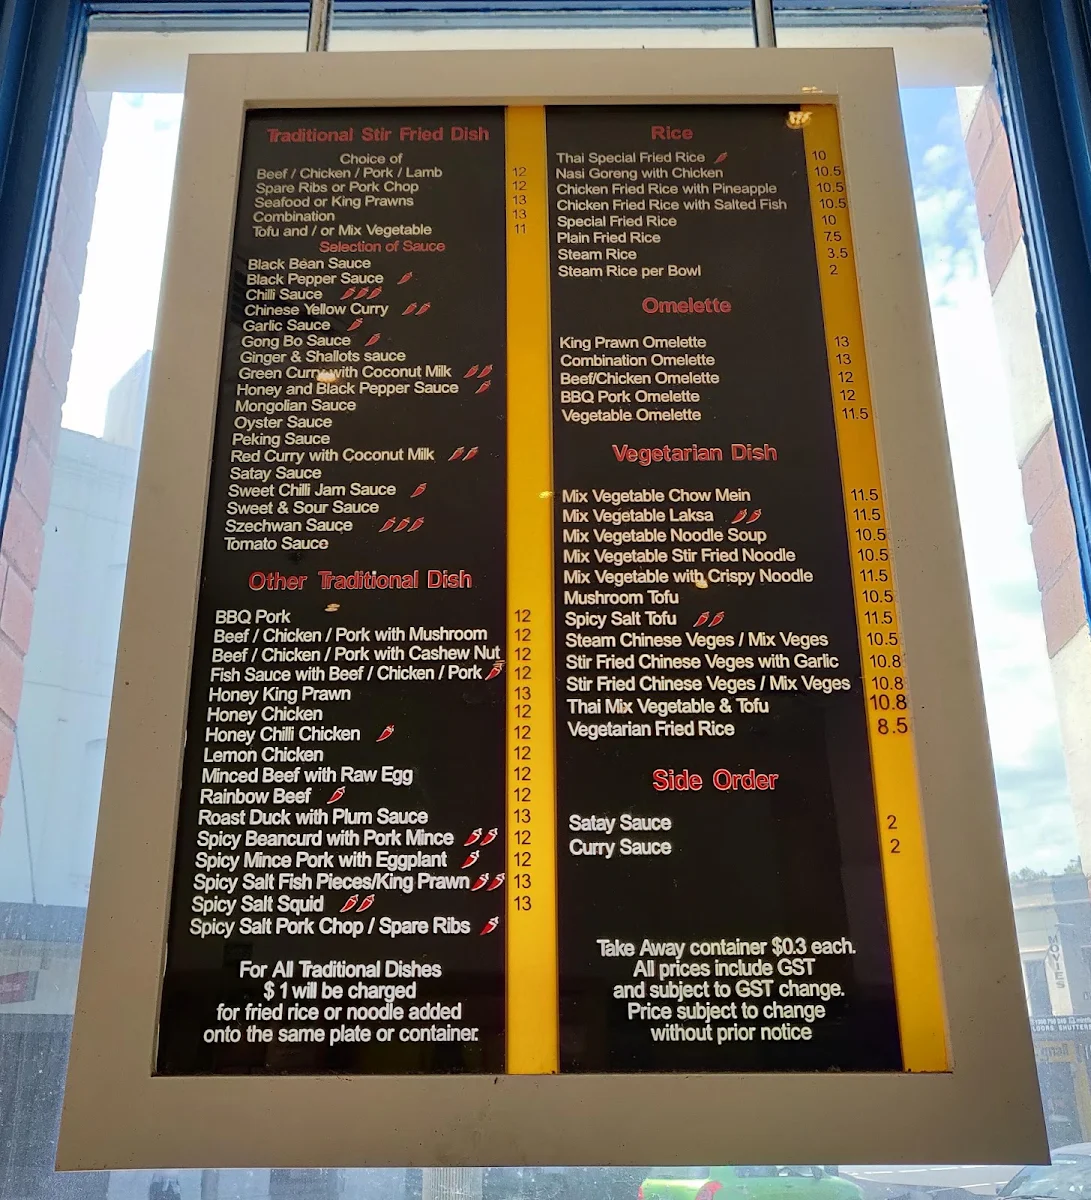 Traditional Stir Fried Dish
Choice of
Beef / Chicken / Pork / Lamb 12
Spare Ribs or Pork Chop 12
Seafood or King Prawns 13
Combination 13
Tofu and / or Mix Vegetable 11
Selection of Sauce
Black Bean Sauce
Black Pepper Sauce
Chilli Sauce
Chinese Yellow Curry
Garlic Sauce
Gong Bo Sauce
Ginger & Shallots sauce
Green Curry with Coconut Milk
Honey and Black Pepper Sauce
Mongolian Sauce
Oyster Sauce
Peking Sauce
Red Curry with Coconut Milk
Satay Sauce
Sweet Chilli Jam Sauce
Sweet & Sour Sauce
Szechwan Sauce
Tomato Sauce
Other Traditional Dish
BBQ Pork 12
Beef / Chicken / Pork with Mushroom 12
Beef / Chicken / Pork with Cashew Nut 12
Fish Sauce with Beef / Chicken / Pork 12
Honey King Prawn 13
Honey Chicken 12
Honey Chilli Chicken 12
Lemon Chicken 12
Minced Beef with Raw Egg 12
Rainbow Beef 12
Roast Duck with Plum Sauce 13
Spicy Beancurd with Pork Mince 12
Spicy Mince Pork with Eggplant 12
Spicy Salt Fish Pieces/King Prawn 13
Spicy Salt Squid 13
Spicy Salt Pork Chop / Spare Ribs
For All Traditional Dishes
$ 1 will be charged
for fried rice or noodle added
onto the same plate or container.
Rice
Thai Special Fried Rice 10
Nasi Goreng with Chicken 10.5
Chicken Fried Rice with Pineapple 10.5
Chicken Fried Rice with Salted Fish 10.5
Special Fried Rice 10
Plain Fried Rice 7.5
Steam Rice 3.5
Steam Rice per Bowl 2
Omelette
King Prawn Omelette 13
Combination Omelette 13
Beef/Chicken Omelette 12
BBQ Pork Omelette 12
Vegetable Omelette 11.5
Vegetarian Dish
Mix Vegetable Chow Mein 11.5
Mix Vegetable Laksa 11.5
Mix Vegetable Noodle Soup 10.5
Mix Vegetable Stir Fried Noodle 10.5
Mix Vegetable with Crispy Noodle 11.5
Mushroom Tofu 10.5
Spicy Salt Tofu 11.5
Steam Chinese Veges / Mix Veges 10.5
Stir Fried Chinese Veges with Garlic 10.8
Stir Fried Chinese Veges / Mix Veges 10.8
Thai Mix Vegetable & Tofu 10.8
Vegetarian Fried Rice 8.5
Side Order
Satay Sauce 2
Curry Sauce 2
Take Away container $0.3 each.
All prices include GST
and subject to GST change.
Price subject to change
without prior notice
MOVIES